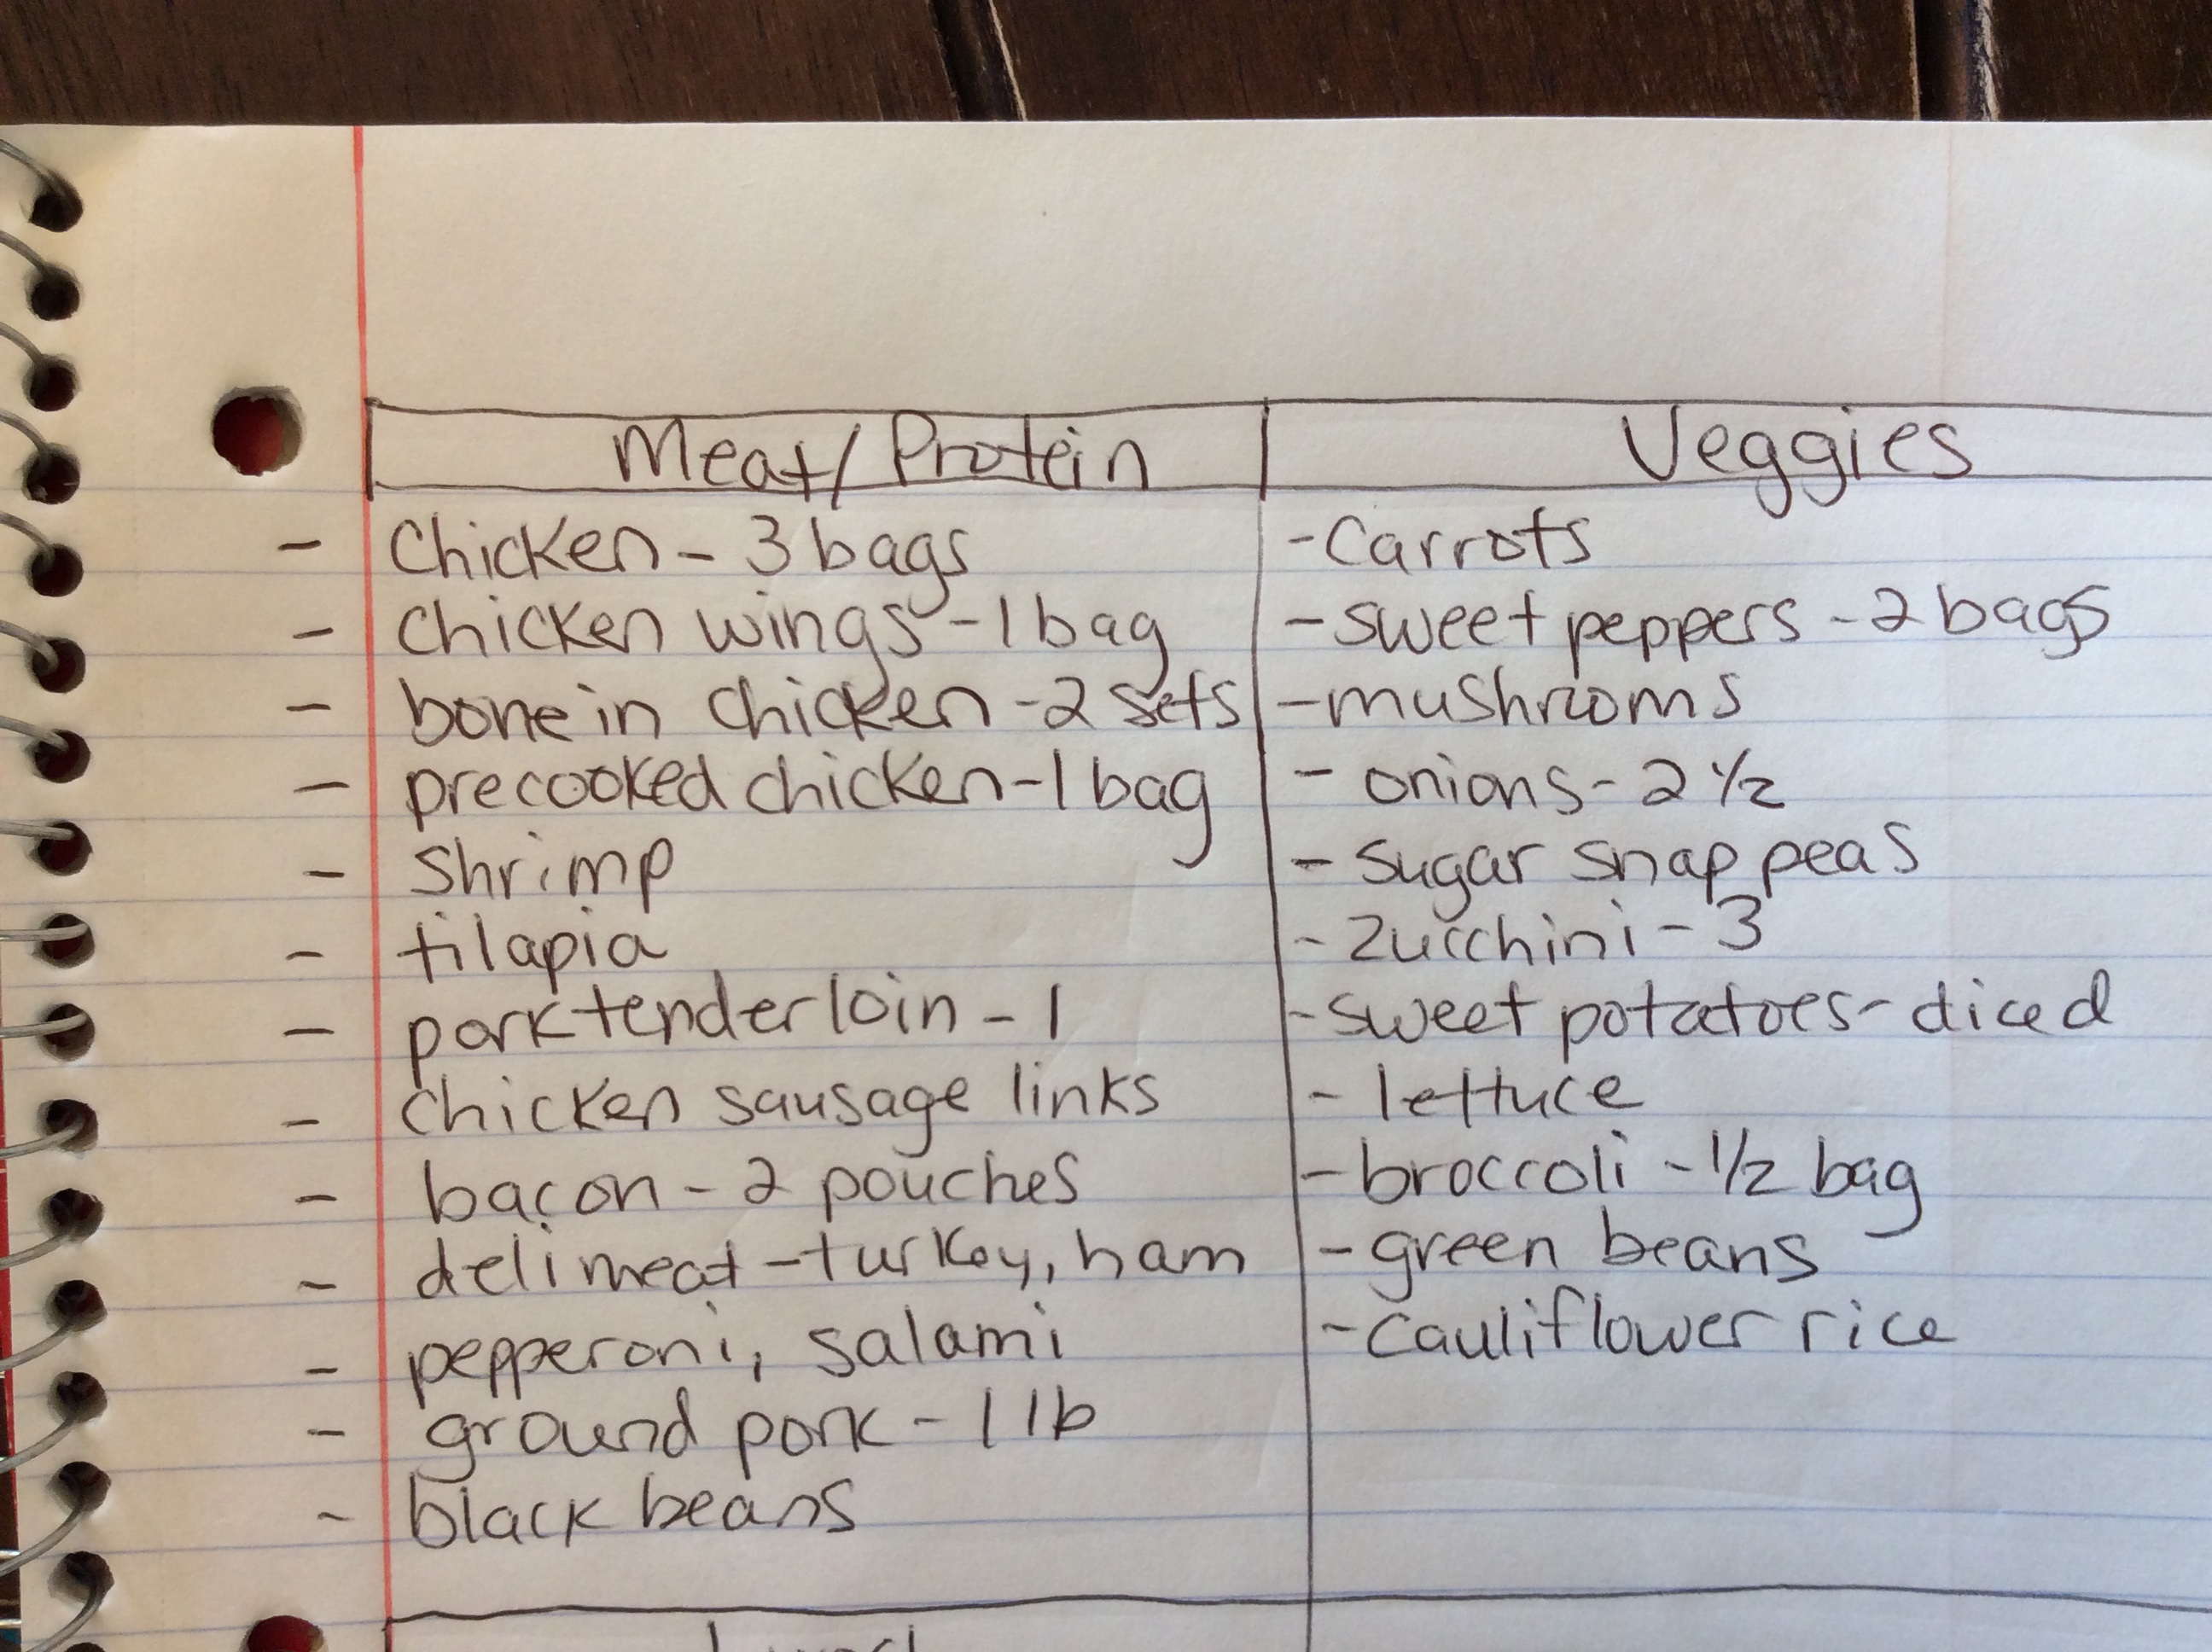 Meat/Protein
- Chicken - 3 bags
- Chicken wings - 1 bag
- bone in chicken - 2 sets
- precooked chicken - 1 bag
- shrimp
- tilapia
- pork tenderloin - 1
- chicken sausage links
- bacon - 2 pouches
- deli meat - turkey, ham
- pepperoni, salami
- ground pork - 1 lb
- black beans
Veggies
- Carrots
- sweet peppers - 2 bags
- mushrooms
- onions - 2 1/2
- sugar snap peas
- zucchini - 3
- sweet potatoes - diced
- lettuce
- broccoli - 1/2 bag
- green beans
- cauliflower rice